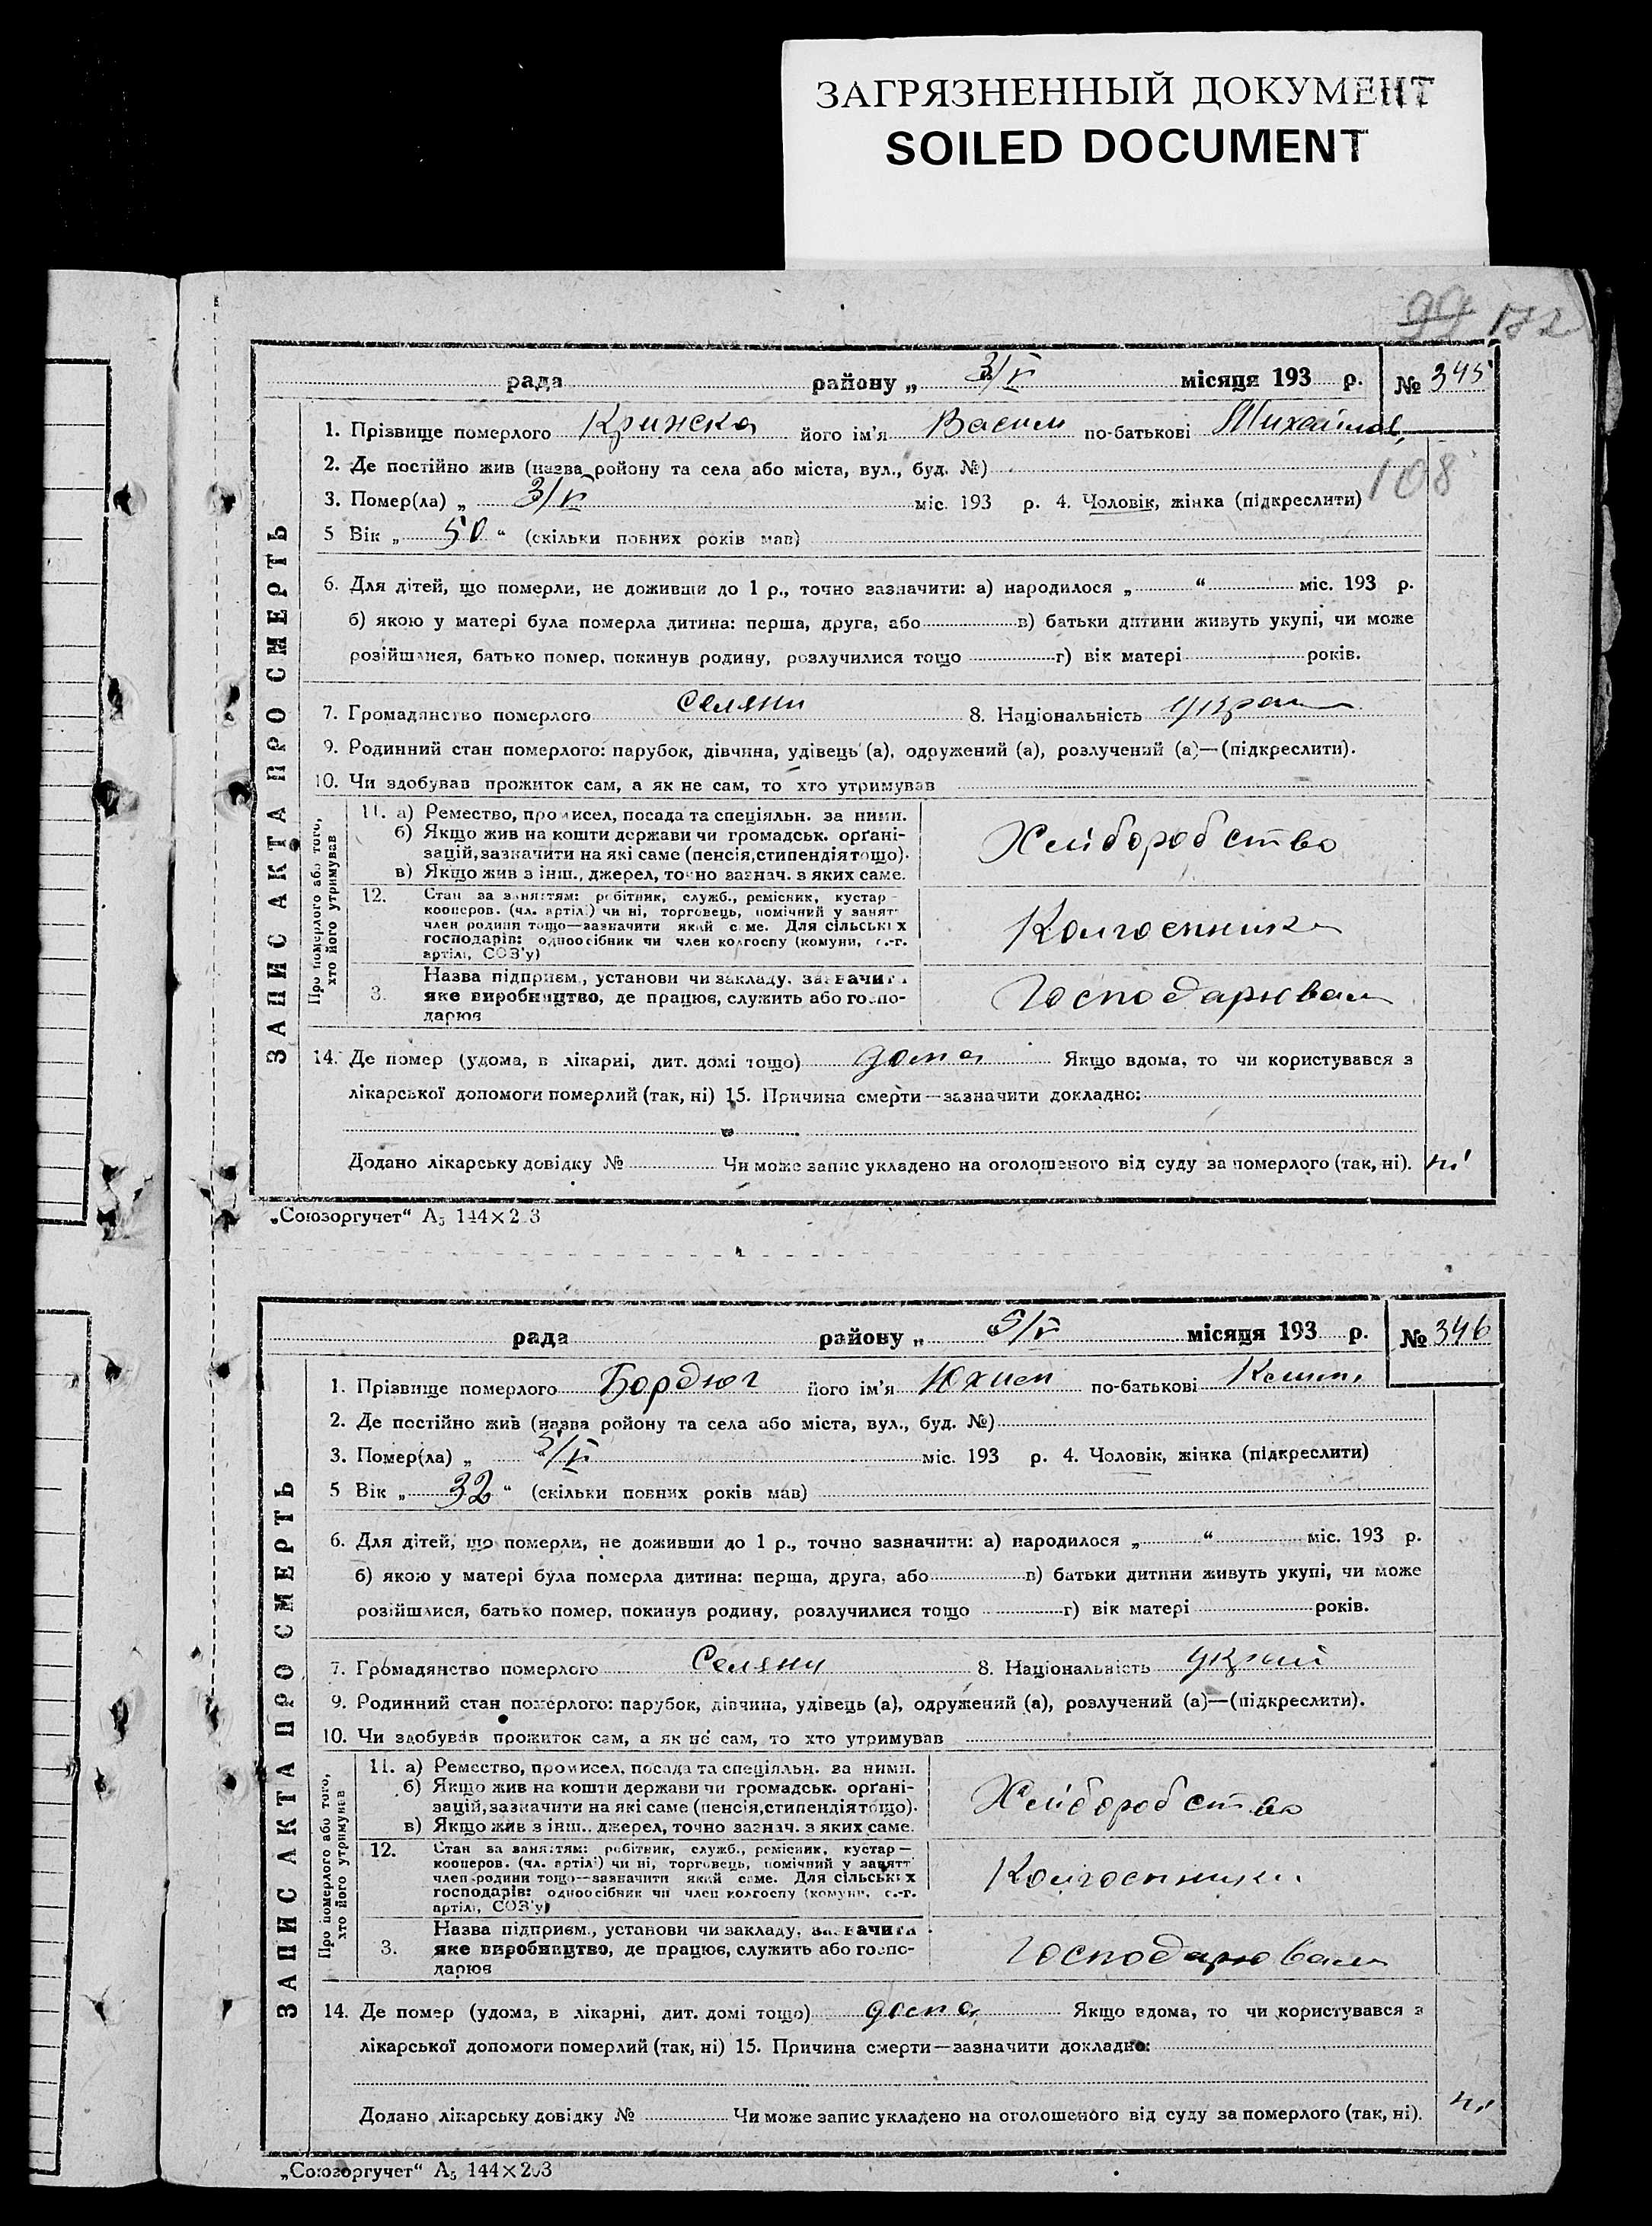 ЗАГРЯЗНЕННЫЙ ДОКУМЕНТ
SOILED DOCUMENT
99 172
рада району „ 3/V місяця 193 р. № 345
1. Прізвище померлого Крижска його ім'я Васил по-батькові Михайлов
2. Де постійно жив (назва ройону та села або міста, вул., буд. №)
108
3. Помер(ла) „ 3/V міс. 193 р. 4. Чоловік, жінка (підкреслити)
5 Вік „ 50 “ (скільки повних років мав)
6. Для дітей, що померли, не доживши до 1 р., точно зазначити: а) народилося „ “ міс. 193 р.
б) якою у матері була померла дитина: перша, друга, або в) батьки дитини живуть укупі, чи може
розійшлися, батько помер, покинув родину, розлучилися тощо г) вік матері років.
7. Громадянство померлого Селяни 8. Національність украи
9. Родинний стан померлого: парубок, дівчина, удівець (а), одружений (а), розлучений (а)—(підкреслити).
10. Чи здобував прожиток сам, а як не сам, то хто утримував
ЗАПИС АКТА ПРО СМЕРТЬ
Про померлого або того,
хто його утримував
11. а) Ремество, промисел, посада та спеціяльн. за ними.
б) Якщо жив на кошти держави чи громадськ. орґані-
зацій, зазначити на які саме (пенсія, стипендія тощо).
в) Якщо жив з інш., джерел, точно зазнач. з яких саме.
Хлиборобство
12. Стан за заняттям: робітник, служб., ремісник, кустар—
кооперов. (чл. артілі) чи ні, торговець, помічний у занятт
член родини тощо—зазначити який саме. Для сільських
господарів: одноосібник чи член колгоспу (комуни, с.-г.
артілі, СОЗ'у)
Колгоспника
3. Назва підприєм., установи чи закладу, зазначити
яке виробництво, де працює, служить або госпо-
дарює
Господарювали
14. Де помер (удома, в лікарні, дит. домі тощо) дома Якщо вдома, то чи користувався з
лікарської допомоги померлий (так, ні) 15. Причина смерти—зазначити докладно:
Додано лікарську довідку № Чи може запис укладено на оголошеного від суду за померлого (так, ні). ні
„Союзоргучет“ А5 144×2 3
рада району „ 5/V місяця 193 р. № 346
1. Прізвище померлого Бордюг його ім'я Юхим по-батькові
2. Де постійно жив (назва ройону та села або міста, вул., буд. №)
3. Помер(ла) „ 5/V міс. 193 р. 4. Чоловік, жінка (підкреслити)
5 Вік „ 32 “ (скільки повних років мав)
6. Для дітей, що померли, не доживши до 1 р., точно зазначити: а) народилося „ “ міс. 193 р.
б) якою у матері була померла дитина: перша, друга, або в) батьки дитини живуть укупі, чи може
розійшлися, батько помер, покинув родину, розлучилися тощо г) вік матері років.
7. Громадянство померлого Селяни 8. Національність украй
9. Родинний стан померлого: парубок, дівчина, удівець (а), одружений (а), розлучений (а)—(підкреслити).
10. Чи здобував прожиток сам, а як не сам, то хто утримував
ЗАПИС АКТА ПРО СМЕРТЬ
Про померлого або того,
хто його утримував
11. а) Ремество, промисел, посада та спеціяльн. за ними.
б) Якщо жив на кошти держави чи громадськ. орґані-
зацій, зазначити на які саме (пенсія, стипендія тощо).
в) Якщо жив з інш., джерел, точно зазнач. з яких саме.
Хлиборобство
12. Стан за заняттям: робітник, служб., ремісник, кустар—
кооперов. (чл. артілі) чи ні, торговець, помічний у занятт
член родини тощо—зазначити який саме. Для сільських
господарів: одноосібник чи член колгоспу (комуни, с.-г.
артілі, СОЗ'у)
Колгоспники
3. Назва підприєм., установи чи закладу, зазначити
яке виробництво, де працює, служить або госпо-
дарює
Господарювали
14. Де помер (удома, в лікарні, дит. домі тощо) дома Якщо вдома, то чи користувався з
лікарської допомоги померлий (так, ні) 15. Причина смерти—зазначити докладно:
Додано лікарську довідку № Чи може запис укладено на оголошеного від суду за померлого (так, ні). ні
„Союзоргучет“ А5 144×203